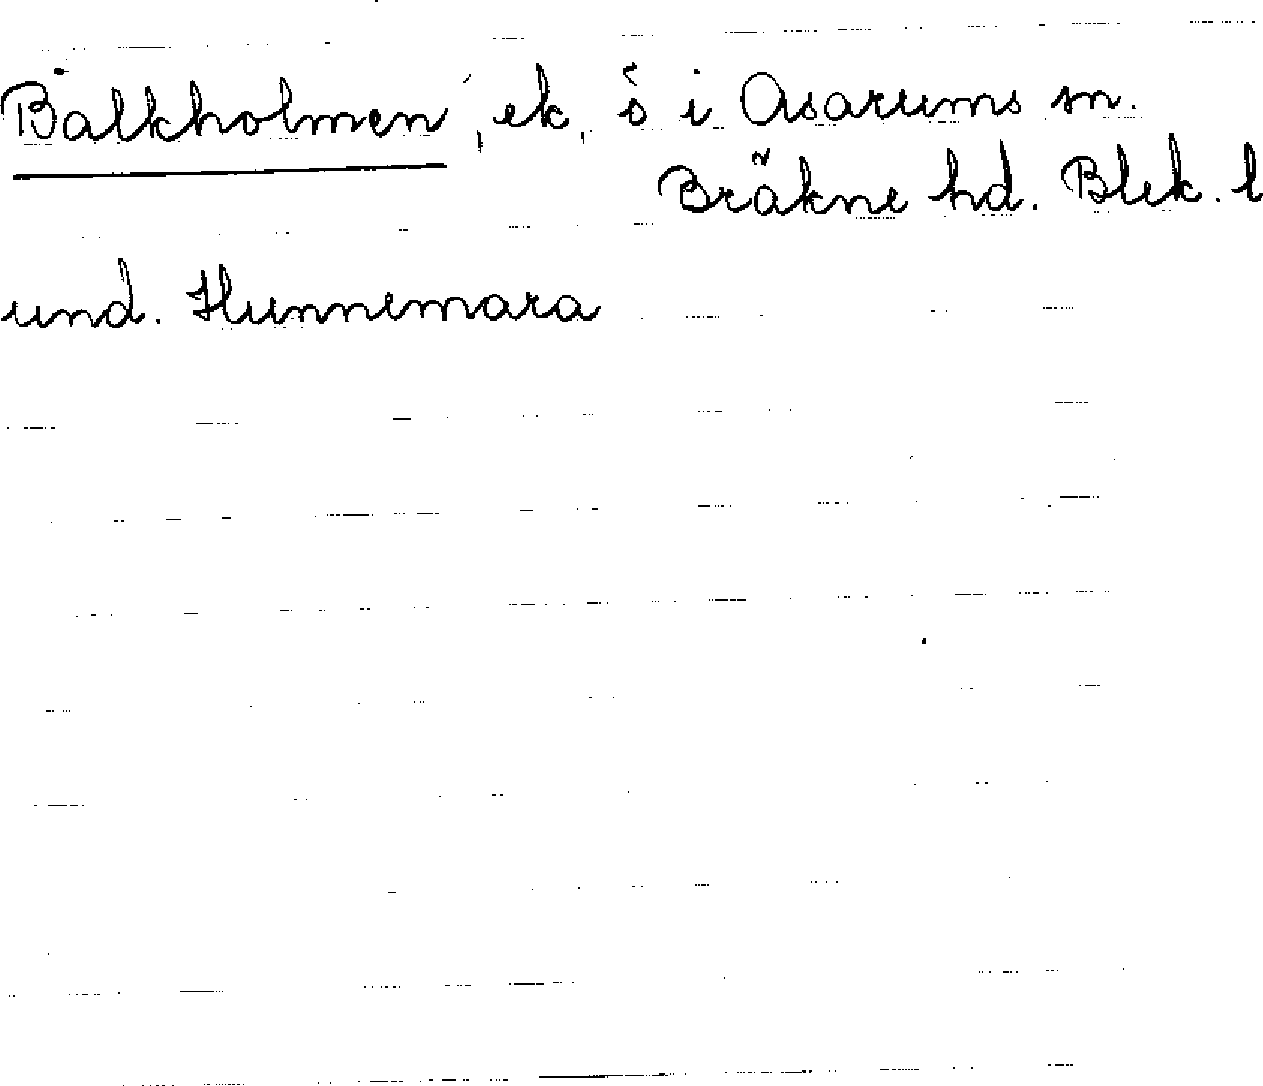 Balkholmen, ek, s i Asarums sn.
Bräkne hd. Blek. l
und. Hunnemara